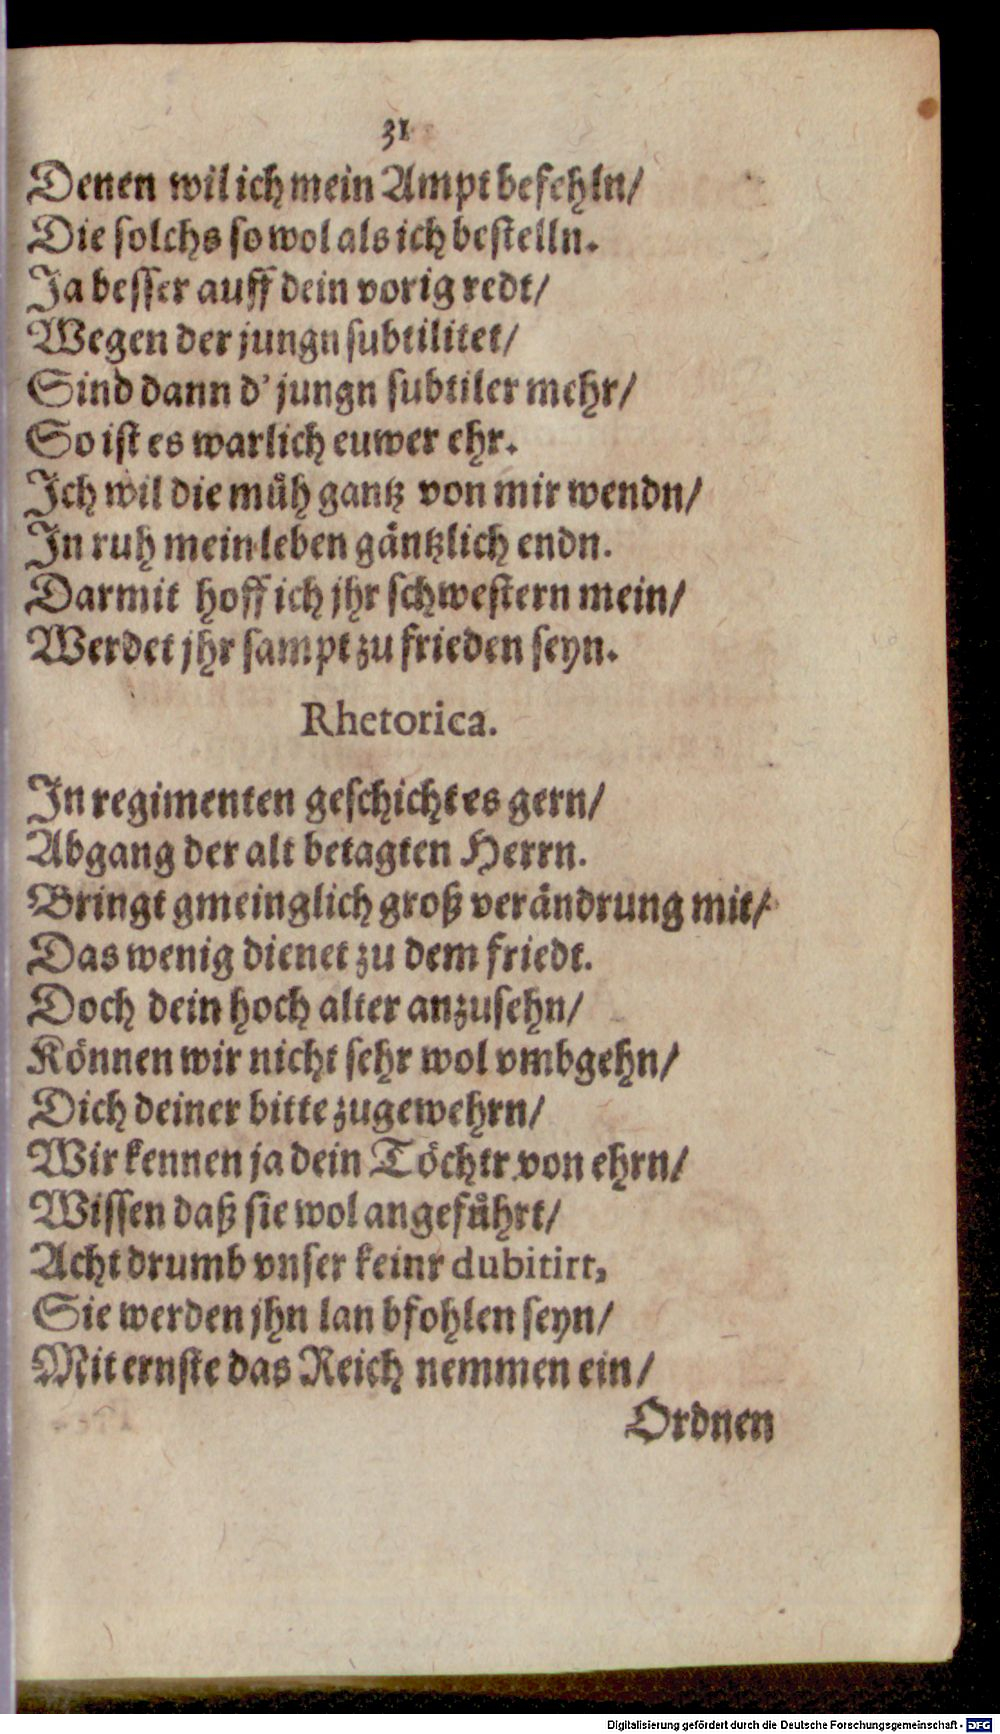 31
Denen wil ich mein Ampt befehln/
Die solchs so wol als ich bestelln.
Ja besser auff dein vorig redt/
Wegen der jungn subtilitet/
Sind dann d' jungn subtiler mehr/
So ist es warlich euwer ehr.
Ich wil die mühgantz von mir wendn/
In ruh mein leben gäntzlich endn.
Darmit hoff ich jhr schwestern mein/
Werdet jhr sampt zu frieden seyn.
Rhetorica.
In regimenten geschicht es gern/
Abgang der alt betagten Herrn.
Bringt gmeinglich groß verändrung mit/
Das wenig dienet zu dem friedt.
Doch dein hoch alter anzusehn/
Können wir nicht sehr wol vmbgehn/
Dich deiner bitte zugewehrn/
Wir kennen ja dein Töchtr von ehrn/
Wissen daß sie wol angeführt/
Acht drumb vnser keinr dubitirt,
Sie werden jhn lan bfohlen seyn/
Mit ernste das Reich nemmen ein/
Ordnen
Digitalisierung gefördert durch die Deutsche Forschungsgemeinschaft - DFG